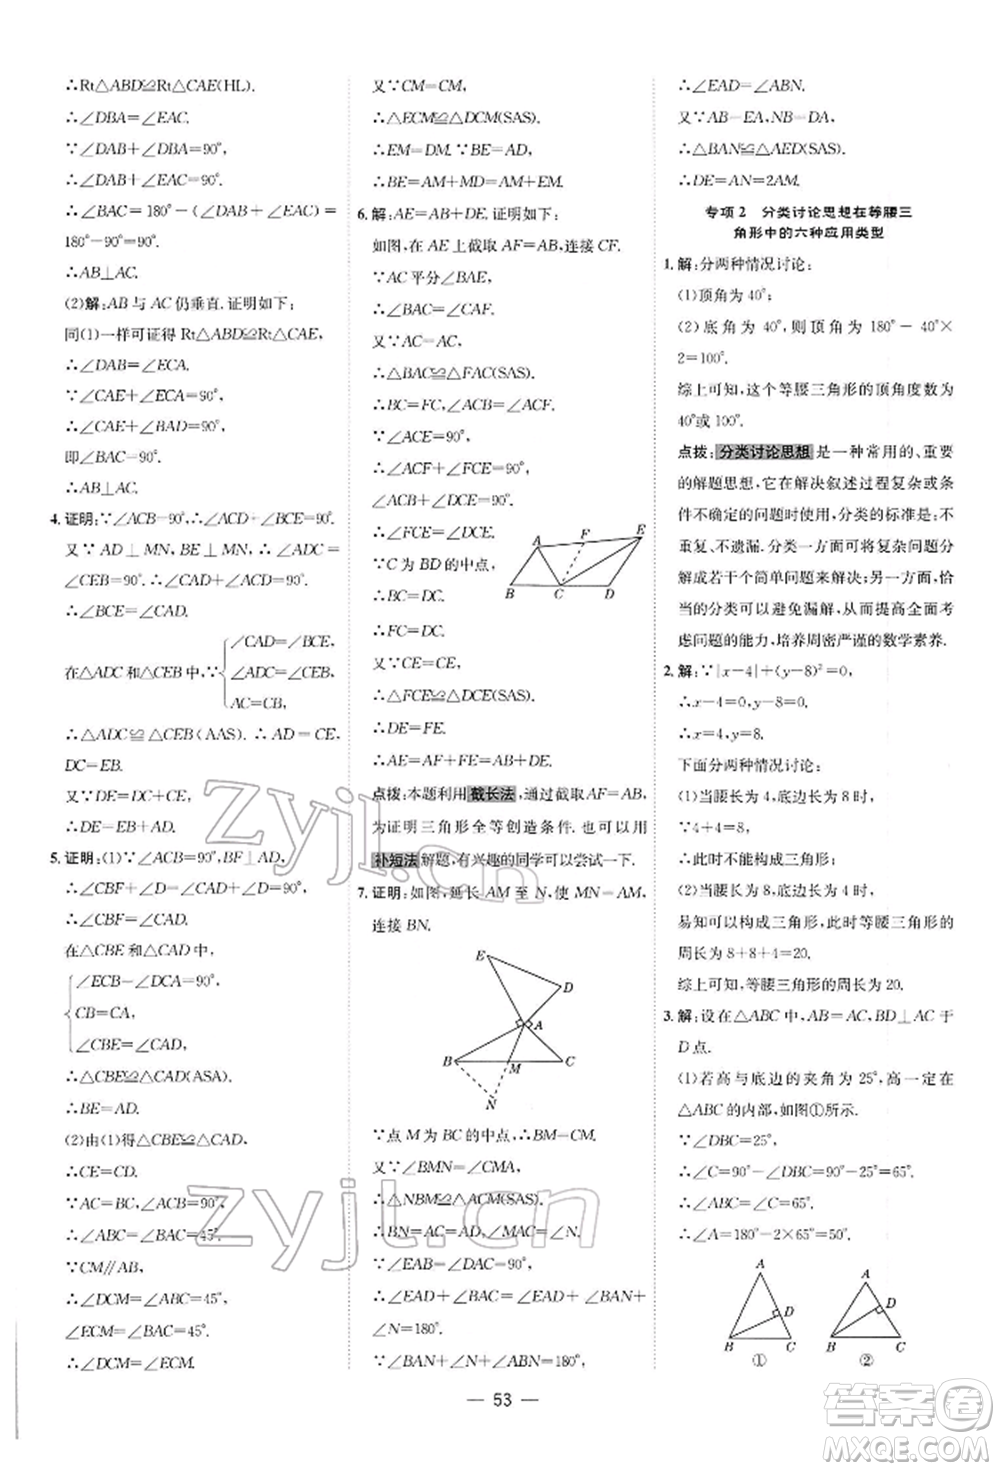 ∴Rt△ABD≌Rt△CAE(HL).
∴∠DBA=∠EAC.
∵∠DAB+∠DBA=90°,
∴∠DAB+∠EAC=90°.
∴∠BAC=180°-(∠DAB+∠EAC)=
180°-90°=90°.
∴AB⊥AC.
(2)解:AB与AC仍垂直.证明如下:
同(1)一样可证得Rt△ABD≌Rt△CAE,
∴∠DAB=∠ECA.
∵∠CAE+∠ECA=90°,
∴∠CAE+∠DAB=90°,
即∠BAC=90°.
∴AB⊥AC.
4.证明:∵∠ACB=90°,∴∠ACD+∠BCE=90°.
又∵AD⊥MN,BE⊥MN,∴∠ADC=
∠CEB=90°.∴∠CAD+∠ACD=90°.
∴∠BCE=∠CAD.
在△ADC和△CEB中,∵
∠CAD=∠BCE,
∠ADC=∠CEB,
AC=CB,
∴△ADC≌△CEB(AAS).∴AD=CE,
DC=EB.
又∵DE=DC+CE,
∴DE=EB+AD.
5.证明:(1)∵∠ACB=90°,BF⊥AD,
∴∠CBF+∠D=∠CAD+∠D=90°.
∴∠CBF=∠CAD.
在△CBE和△CAD中,
∠ECB=∠DCA=90°,
CB=CA,
∠CBE=∠CAD,
∴△CBE≌△CAD(ASA).
∴BE=AD.
(2)由(1)得△CBE≌△CAD,
∴CE=CD.
∵AC=BC,∠ACB=90°,
∴∠ABC=∠BAC=45°.
∵CM∥AB,
∴∠DCM=∠ABC=45°,
∠ECM=∠BAC=45°.
∴∠DCM=∠ECM.
又∵CM=CM,
∴△ECM≌△DCM(SAS).
∴EM=DM.∵BE=AD,
∴BE=AM+MD=AM+EM.
6.解:AE=AB+DE.证明如下:
如图,在AE上截取AF=AB,连接CF.
∵AC平分∠BAE,
∴∠BAC=∠CAF.
又∵AC=AC,
∴△BAC≌△FAC(SAS).
∴BC=FC,∠ACB=∠ACF.
∵∠ACE=90°,
∴∠ACF+∠FCE=90°,
∠ACB+∠DCE=90°.
∴∠FCE=∠DCE.
∵C为BD的中点,
∴BC=DC.
∴FC=DC.
又∵CE=CE,
∴△FCE≌△DCE(SAS).
∴DE=FE.
∴AE=AF+FE=AB+DE.
A F E B C D
点拨:本题利用截长法,通过截取AF=AB,
为证明三角形全等创造条件.也可以用
补短法解题,有兴趣的同学可以尝试一下.
7.证明:如图,延长AM至N,使MN=AM,
连接BN.
E D A B M C N
∵点M为BC的中点,∴BM=CM.
又∵∠BMN=∠CMA,
∴△NBM≌△ACM(SAS).
∴BN=AC=AD,∠N=∠MAC.
∵∠EAB=∠DAC=90°,
∴∠EAD+∠BAC=∠EAD+∠BAN
+∠N=180°.
∵∠BAN+∠N+∠ABN=180°,
∴∠EAD=∠ABN.
又∵BA=EA,NB=DA,
∴△BAN≌△AED(SAS).
∴DE=AN=2AM.
专项2 分类讨论思想在等腰三
角形中的六种应用类型
1.解:分两种情况讨论:
(1)顶角为40°;
(2)底角为40°,则顶角为180°-40°×
2=100°.
综上可知,这个等腰三角形的顶角度数为
40°或100°.
点拨:分类讨论思想是一种常用的、重要
的解题思想,它在解决叙述过程复杂或条
件不确定的问题时使用,分类的标准是:不
重复、不遗漏.分类一方面可将复杂问题分
解成若干个简单问题来解决;另一方面,恰
当的分类可以避免漏解,从而提高全面考
虑问题的能力,培养周密严谨的数学素养.
2.解:∵|x-4|+(y-8)²=0,
∴x-4=0,y-8=0.
∴x=4,y=8.
下面分两种情况讨论:
(1)当腰长为4,底边长为8时,
∵4+4=8,
∴此时不能构成三角形.
(2)当腰长为8,底边长为4时,
易知可以构成三角形,此时等腰三角形的
周长为8+8+4=20.
综上可知,等腰三角形的周长为20.
3.解:设在△ABC中,AB=AC,BD⊥AC于
D点.
(1)若高与底边的夹角为25°,高一定在
△ABC的内部,如图①所示.
∵∠DBC=25°,
∴∠C=90°-∠DBC=90°-25°=65°.
∴∠ABC=∠C=65°.
∴∠A=180°-2×65°=50°.
A D B C
①
A D B C
②
— 53 —
zyjl.cn
zyjl.cn
答案圈
MXQE.COM